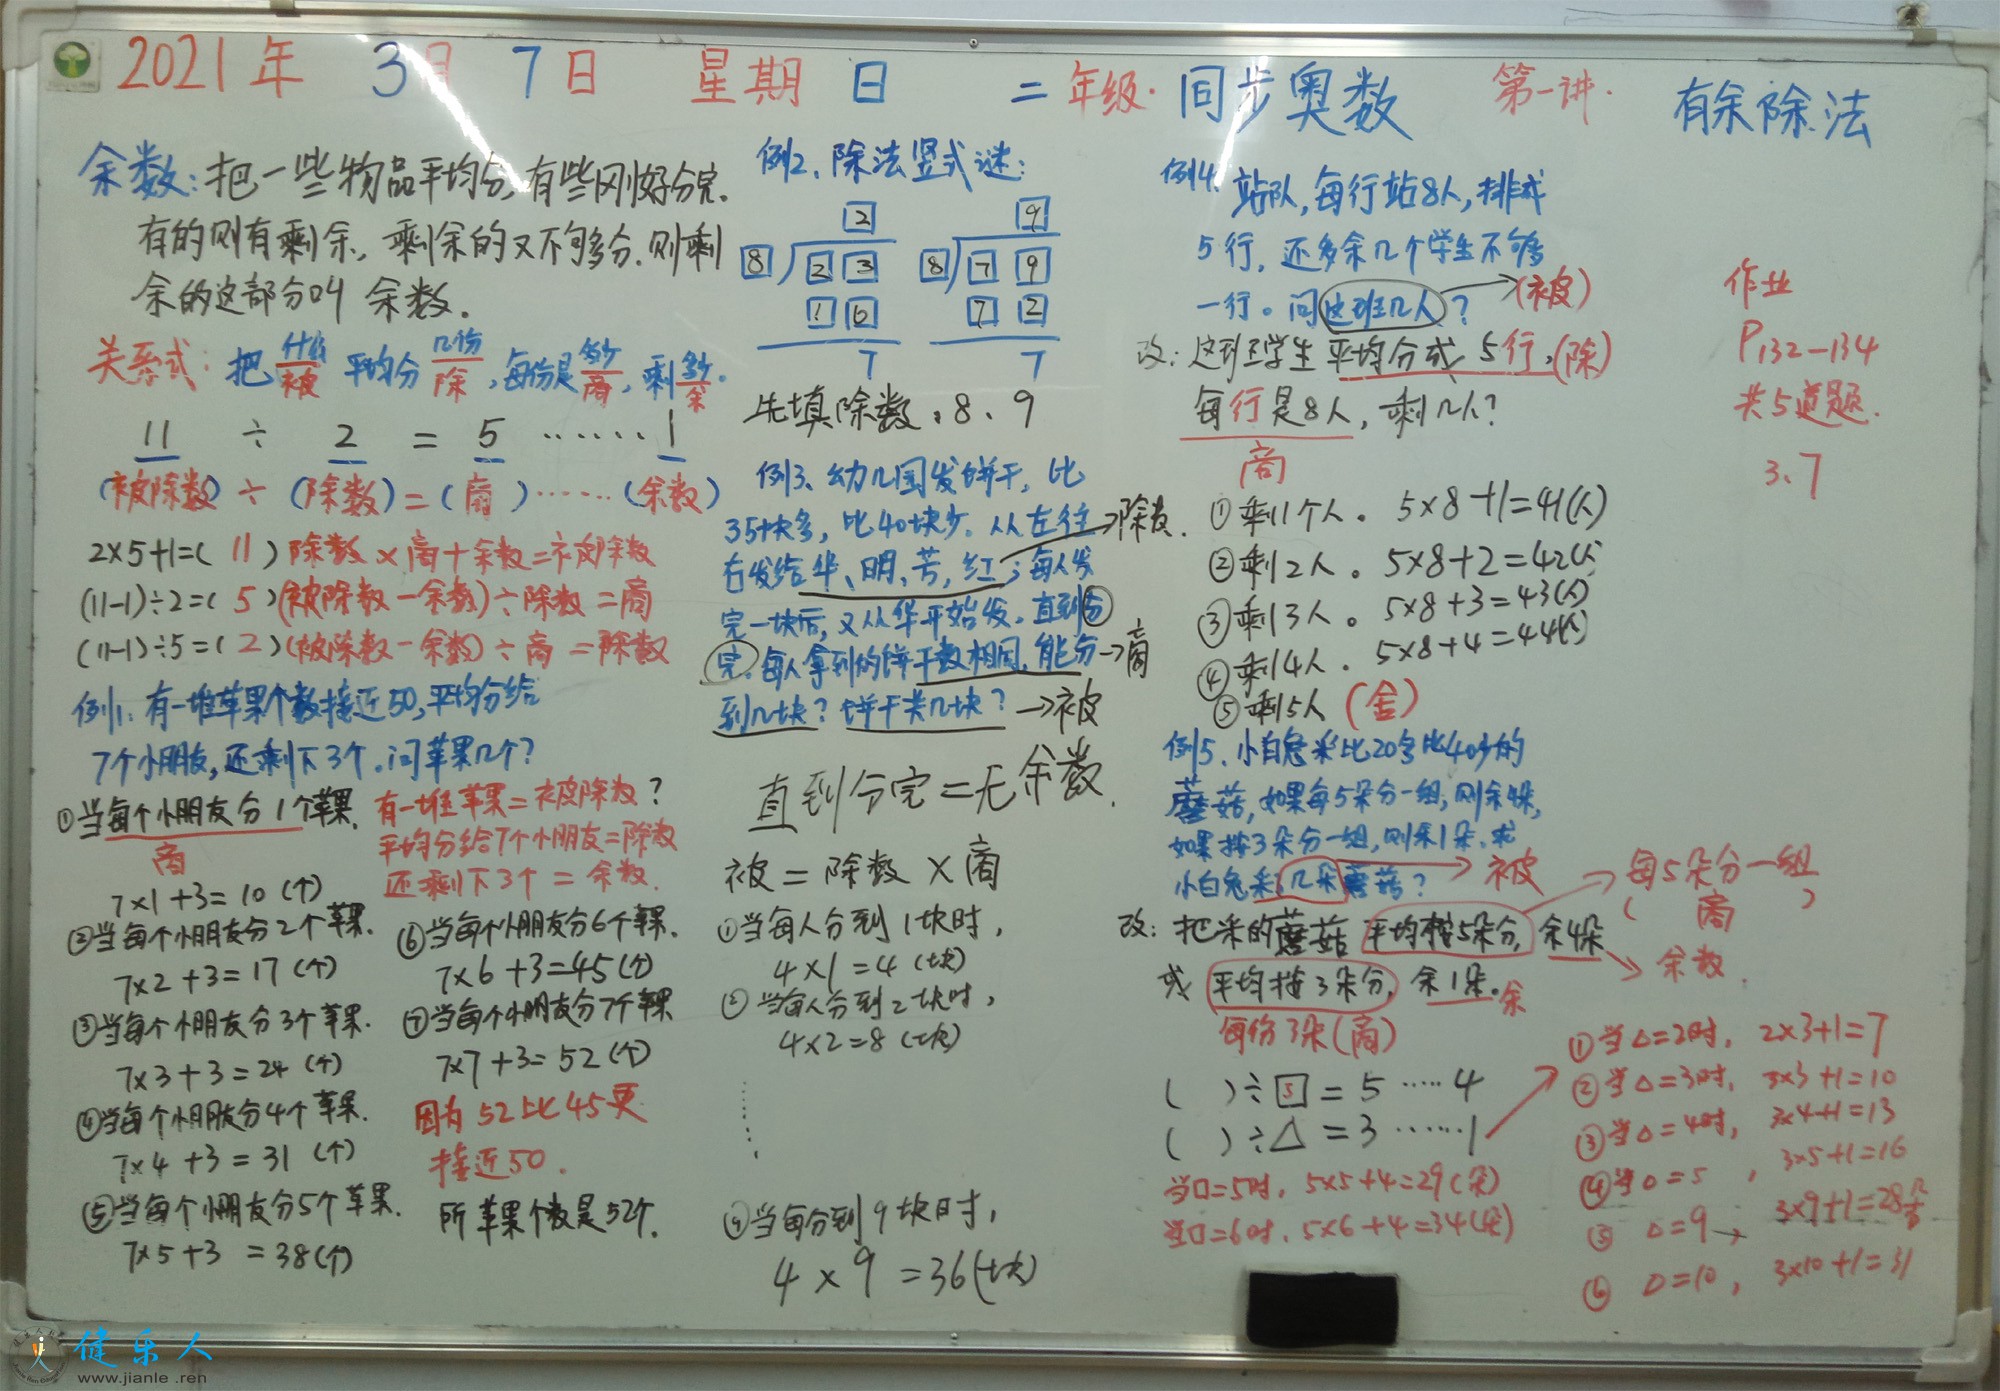 2021年 3月 7日 星期日 二年级·同步奥数 第一讲· 有余除法
余数:把一些物品平均分,有些刚好分完.
有的则有剩余,剩余的又不够多分.则剩
余的这部分叫 余数.
关系式:把什么 平均分几份,每份是多少,剩多少.
被 除 商 余
11 ÷ 2 = 5 ······1
(被除数)÷(除数)=(商)······(余数)
2×5+1=( 11 )除数×商+余数=被除数
(11-1)÷2=( 5 )(被除数-余数)÷除数=商
(11-1)÷5=( 2 )(被除数-余数)÷商=除数
例1.有一堆苹果个数接近50,平均分给
7个小朋友,还剩下3个.问苹果几个?
①当每个小朋友分1个苹果.
商
7×1+3=10(个)
②当每个小朋友分2个苹果.
7×2+3=17(个)
③当每个小朋友分3个苹果.
7×3+3=24(个)
④当每个小朋友分4个苹果.
7×4+3=31(个)
⑤当每个小朋友分5个苹果.
7×5+3=38(个)
有一堆苹果=被除数?
平均分给7个小朋友=除数
还剩下3个=余数.
⑥当每个小朋友分6个苹果.
7×6+3=45(个)
⑦当每个小朋友分7个苹果
7×7+3=52(个)
因为52比45更
接近50.
所苹果个数是52个.
例2.除法竖式谜:
2 9
8 2 3 8 7 9
1 6 7 2
7 7
先填除数:8、9
例3、幼儿园发饼干,比
35块多,比40块少.从左往→除数.
右发给华、明、芳,红;每人发
完一块后,又从华开始发.直到分
完.每人拿到的饼干数相同,能分→商
到几块?饼干共几块?→被
直到分完=无余数.
被=除数×商
①当每人分到1块时,
4×1=4(块)
②当每人分到2块时,
4×2=8(块)
⑨当每分到9块时,
4×9=36(块)
例4、站队,每行站8人,排成
5行,还多余几个学生不够
一行。问这班几人?→(被)
改:这班学生平均分成5行,(除)
每行是8人,剩几人?
商
①剩1个人。5×8+1=41(人)
②剩2人。5×8+2=42(人)
③剩3人。5×8+3=43(人)
④剩4人.5×8+4=44(人)
⑤剩5人(舍)
例5、小白兔采比20多比40少的
蘑菇,如果每5朵分一组,则余4朵,
如果按3朵分一组,则余1朵.求
小白兔采几朵蘑菇?→被
改:把采的蘑菇平均按5朵分,余4朵
或平均按3朵分,余1朵.余
每份3朵(商)
每5朵分一组
( 商 )
余数.
( )÷5=5·····4
( )÷△=3······1
当□=5时,5×5+4=29(朵)
当□=6时,5×6+4=34(朵)
①当△=2时,2×3+1=7
②当△=3时,3×3+1=10
③当△=4时,3×4+1=13
④当△=5,3×5+1=16
⑤△=9→3×9+1=28朵
⑥△=10,3×10+1=31
作业
P132-134
共5道题.
3、7
健乐人
www.jianle.ren